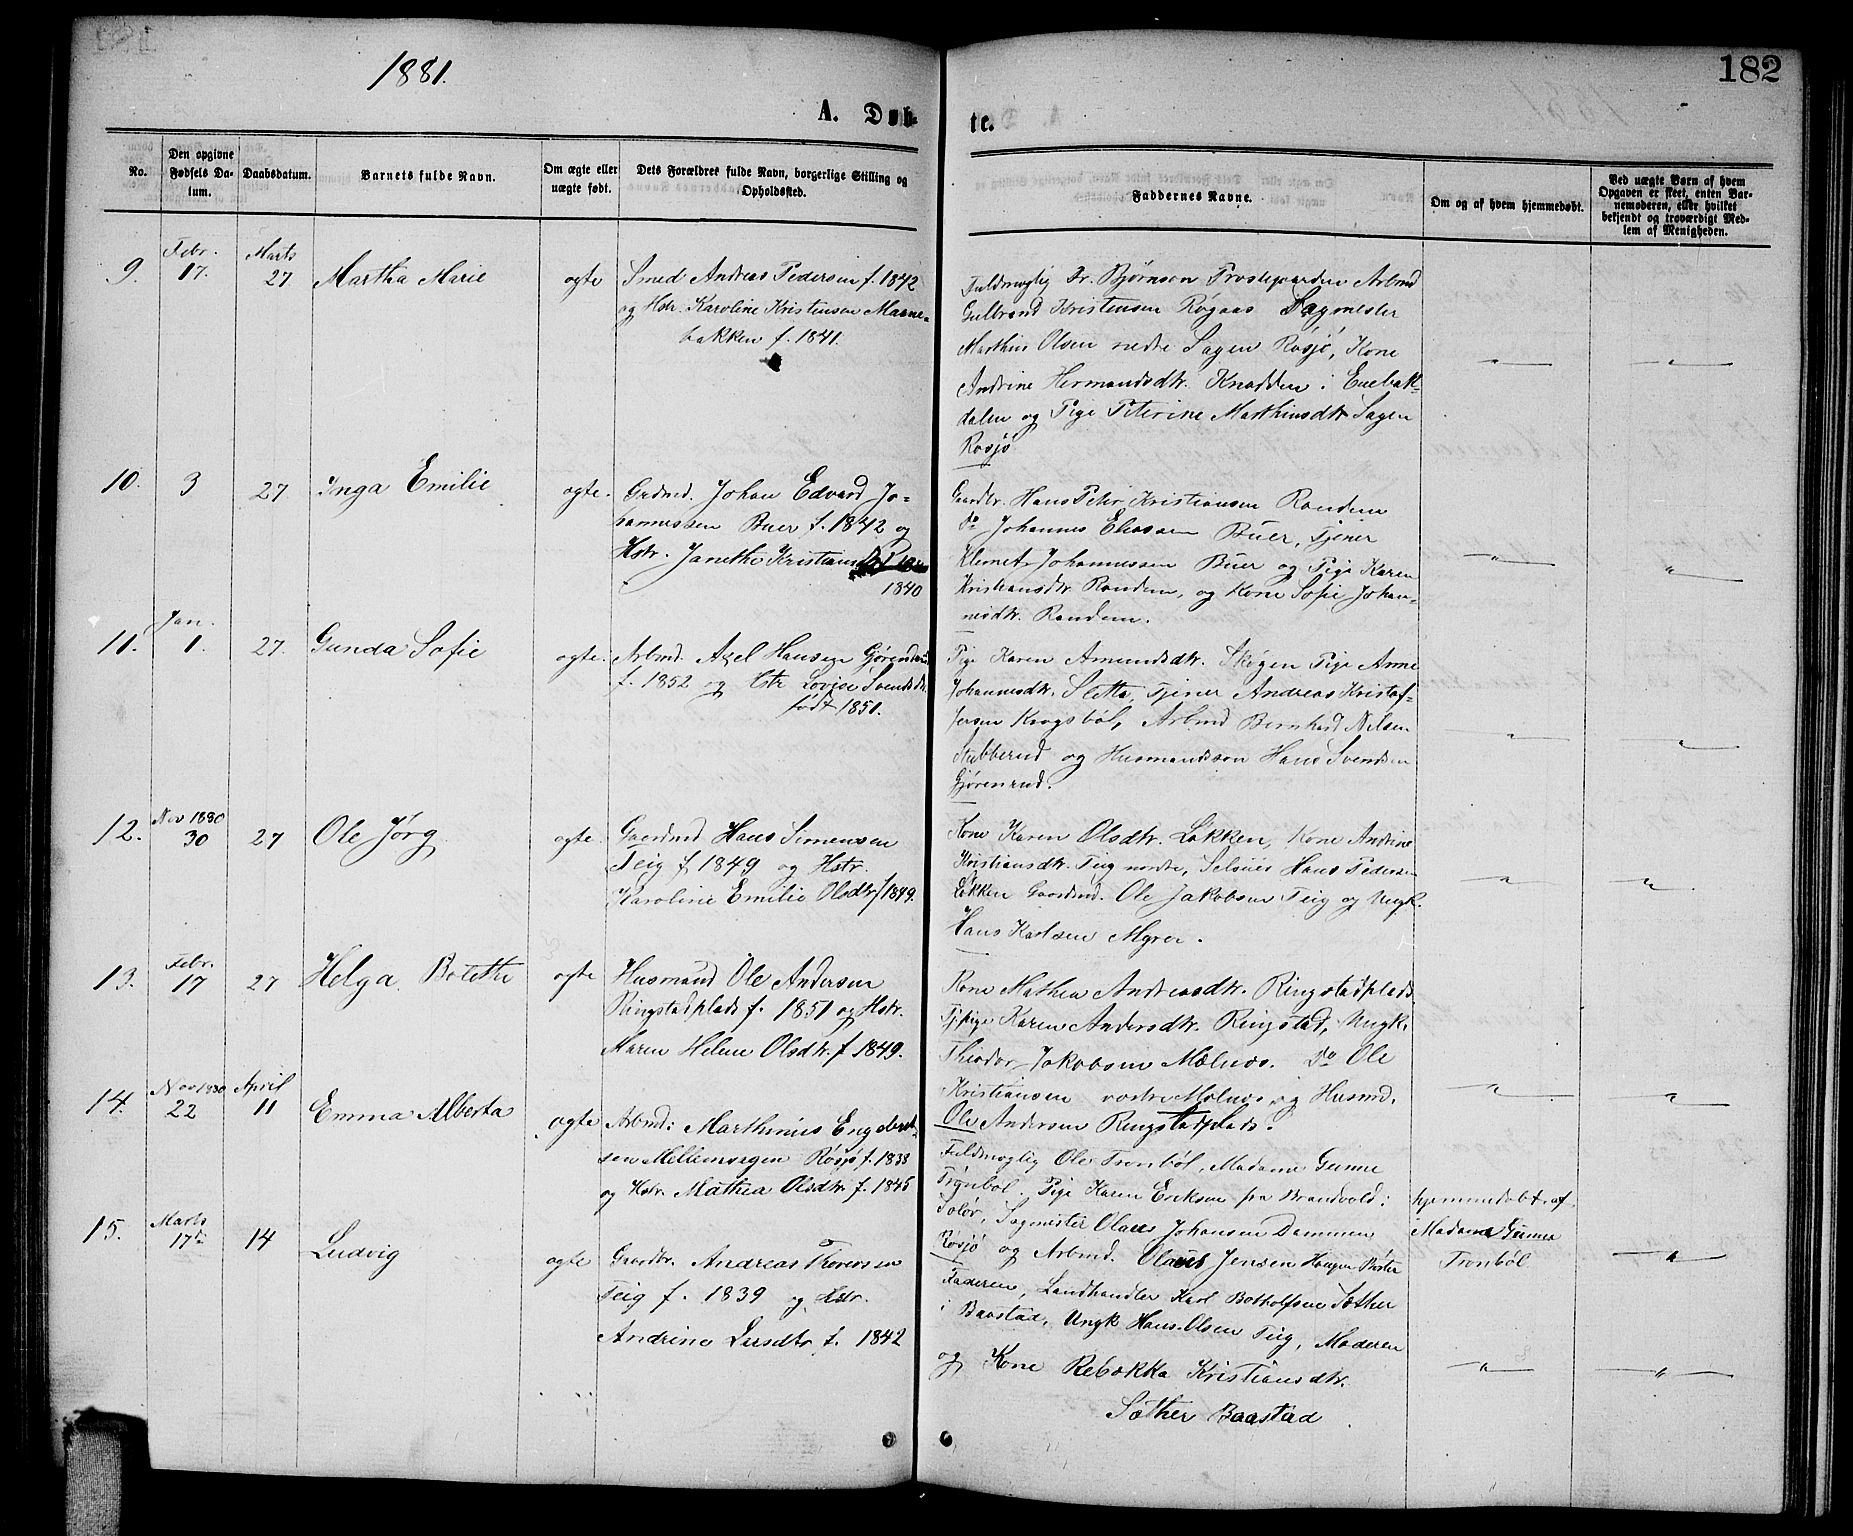 1881.
182
A. Døb-
te.
No.
Den opgivne
Fødsels Da-
tum.
Daabsdatum.
Barnets fulde Navn.
Om ægte eller
uægte født.
Dets Forældres fulde Navn, borgerlige Stilling og
Opholdssted.
Faddernes Navne.
Om og af hvem hjemmedøbt.
Ved uægte Børn af hvem
Opgaven er skeet, enten Bar-
nemoderen, eller hvilket
bekjendt og troværdigt Med-
lem af Menigheden.
9.
Febr.
17.
Marts
27
Martha Marie
ægte
Smed Andreas Pedersen f. 1842
og Hstr. Karoline Kristensen Marne-
bakken f. 1841.
Fuldmægtig Dr. Bjørnson Prostegaarden Arbmd
Gulbrand Kristensen Røgaas Sagmester
Marthin Olsen nedre Sagen Røsjø, Kone
Andrine Hermandsdtr. Knadden i Enebak-
dalen og Pige Peterine Marthinsdtr Sagen
Røsjø
10.
3
27
Inga Emilie
ægte.
Grdmd. Johan Edvard Jo-
hannessen Buer f. 1842 og
Hstr. Janethe Kristiansdtr
1840
Gaardbr. Hans Petr. Kristiansen Randem
Do Johannes Eliassen Buer, Tjener
Klemet Johannessen Buer og Pige Karen
Kristiansdtr. Randem, og Kone Sofie Johan-
nesdtr. Randem.
11.
Jan.
1.
27.
Gunda Sofie
ægte.
Arbmd. Axel Hansen Gjørenrud
f. 1852 og Hstr Lovise Svendsdtr.
født 1851.
Pige Karen Amundsdtr. Skøgen Pige Anne
Johannesdtr. Sletta, Tjener Andreas Kristof-
fersen Krogsbøl, Arbmd Bernhard Nilsen
Stubberud og Husmandssøn Hans Svendsen
Gjørenrud.
12.
Nov 1880
30
27
Ole Jørg
ægte.
Gaardmd Hans Simensen
Teig f 1849 og Hstr.
Karoline Emilie Olsdtr f 1849.
Kone Karen Olsdtr. Løkken, Kone Andrine
Kristiansdtr. Teig nordre, Selveier Hans Pedersen
Løkken Gaardmd. Ole Jakobsen Teig og Ungk.
Hans Karlsen Myrer.
13.
Febr.
17
27
Helga Bolethe
ægte
Husmand Ole Andersen
Ringstadplads f. 1851 og Hstr.
Maren Helene Olsdtr. f 1849.
Kone Mathea Andreasdtr. Ringstadplads
Tj.pige Karen Andersdtr. Ringstad, Ungk.
Theodor Jakobsen Mælnes. Do Ole
Kristiansen vestre Mælnes og Husmd.
Ole Andersen Ringstadplads.
14.
Nov 1880
22
April
11
Emma Alberta
ægte
Arbmd: Marthinus Engebret-
sen Mellemsagen Røsjø f. 1838
og Hstr. Mathea Olsdtr. f. 1845
Fuldmægtig Ole Tronbøl, Madame Gunne
Trønbøl. Pige Karen Eriksen fra Brandvold i
Solør, Sagmester Olaus Johansen Dammen
Røsjø og Arbmd. Olaus Jensen Haugen Børter
hjemmedøbt af
Madame Gunnea
Tronbøl
15.
Marts
17de
14
Ludvig
ægte
Gaardbr. Andreas Thoresen
Teig f. 1839 og Hstr.
Andrine Larsdtr. f. 1842
Faderen, Landhandler Karl Botholfsen Sæther
i Baastad, Ungk Hans Olsen Teig, Moderen
og Kone Rebækka Kristiansdtr.
Sæther Baastad